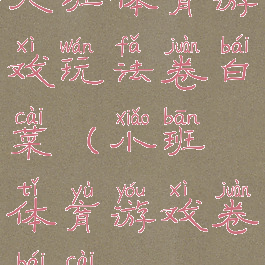 大班体育游
xì wán fǎ juàn bái
戏玩法卷白
cài xiǎo bān
菜(小班
tǐ yù yóu xì juàn
体育游戏卷
bái cài